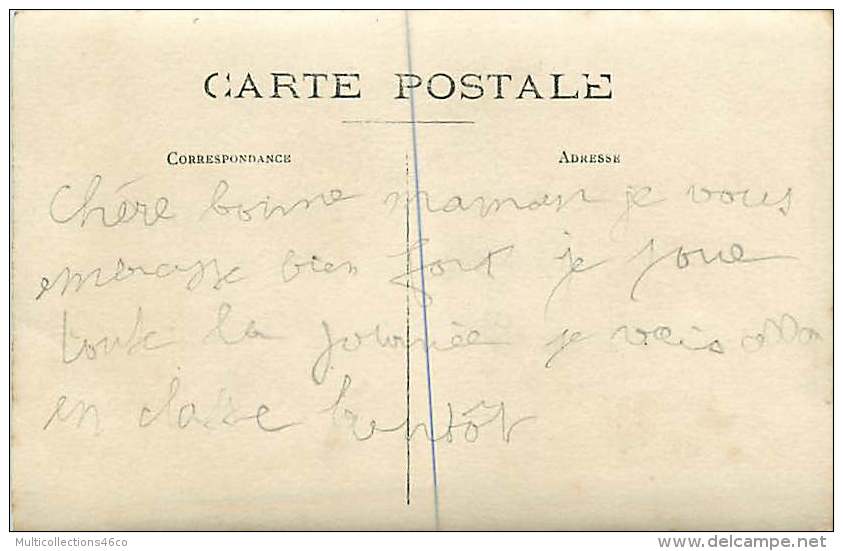 CARTE POSTALE
CORRESPONDANCE
ADRESSE
Chère bonne maman je vous
embrasse bien fort je joue
toute la journée je vais
en classe bientôt
Multicollections46co
www.delcampe.net